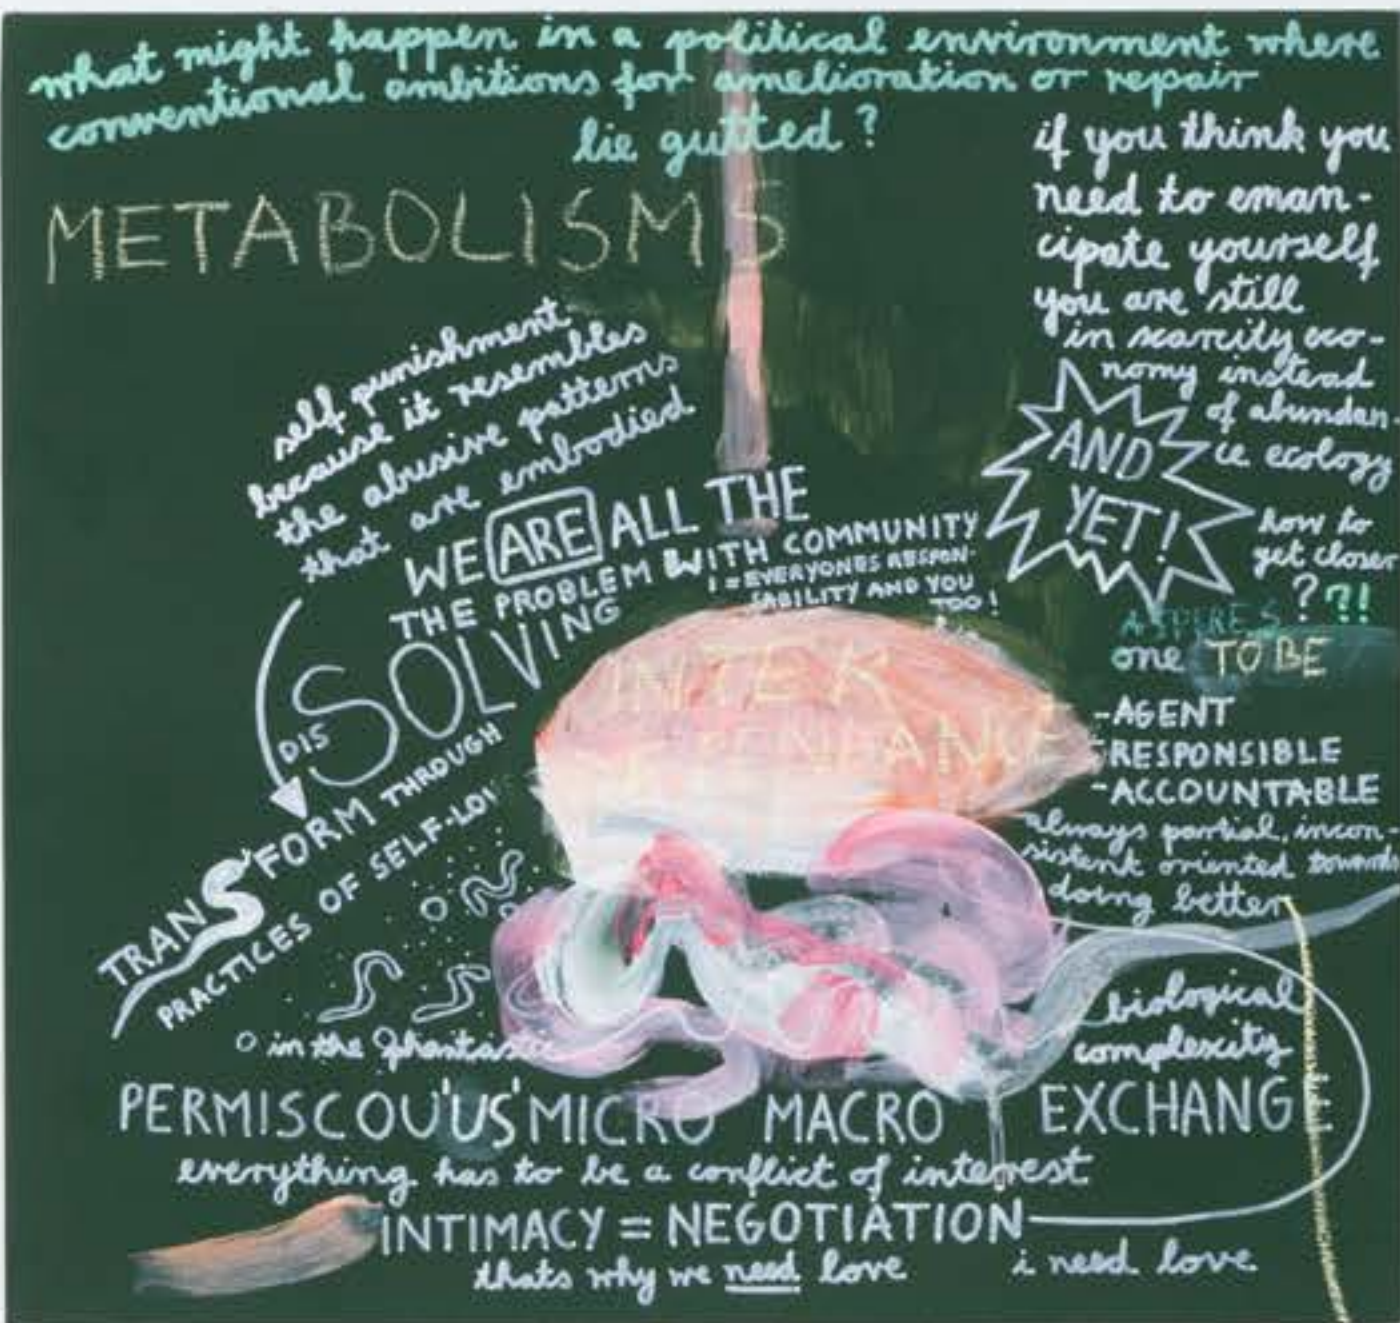 what might happen in a political environment where
conventional ambitions for amelioration or repair
lie gutted?
METABOLISMS
if you think you
need to eman-
cipate yourself
you are still
in scarcity eco-
nomy instead
of abundan
ce ecology
AND
YET!
how to
get closer
? ?!
self punishment
because it resembles
the abusive patterns
that are embodied
WE ARE ALL THE
THE PROBLEM WITH COMMUNITY
I = EVERYONES RESPON-
SABILITY AND YOU
TOO!
SOLVING
DIS
TRANSFORM THROUGH
PRACTICES OF SELF-LOI
INTER
ASPIRES
one TO BE
-AGENT
-RESPONSIBLE
-ACCOUNTABLE
always partial, incon
sistent oriented towards
doing better
in the phantas
biological
complexity
PERMISCOU'US' MICRO MACRO EXCHANGE
everything has to be a conflict of interest
INTIMACY = NEGOTIATION
thats why we need love
i need love